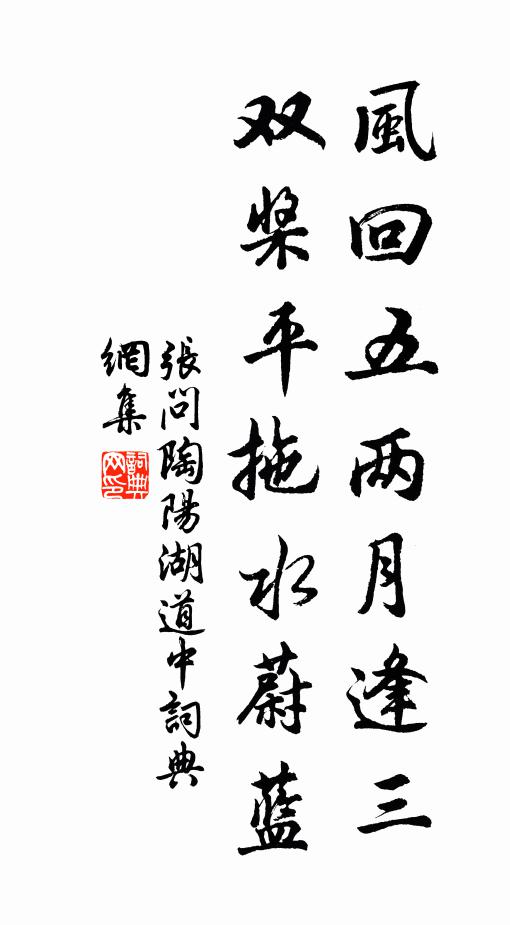 風回五两月逢三
双桨平拖水蔚藍
張問陶陽湖道中詞典
網集
詞典
网印